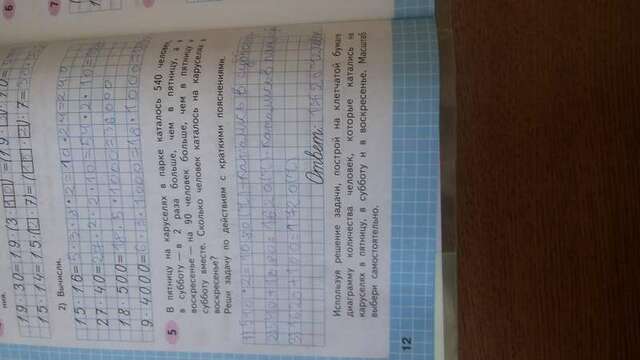 ния.
19 · 30 = 19 · (3 · 10) = (19 · 3) · 10 =
15 · 14 = 15 · (2 · 7) = (15 · 2) · 7 = 30
2) Вычисли.
15 · 16 = 5 · 3 · 8 · 2 = 10 · 24 = 240
27 · 40 = 27 · 2 · 2 · 10 = 54 · 2 · 10 =
18 · 500 = 18 · 5
9 · 4000 =
5 В пятницу на каруселях в парке каталось 540 человек,
в субботу — в 2 раза больше, чем в пятницу, а в
воскресенье — на 90 человек больше, чем в пятницу и
субботу вместе. Сколько человек каталось на каруселях в
воскресенье?
Реши задачу по действиям с краткими пояснениями.
1) 540 · 2 = 1080 (ч.) - катались в субботу
2) 540 + 1080 = 1620 (ч) - катались в
3) 1620 +
Ответ:
Используя решение задачи, построй на клетчатой бумаге
диаграмму количества человек, которые катались на
каруселях в пятницу, в субботу и в воскресенье. Масштаб
выбери самостоятельно.
12
6
7